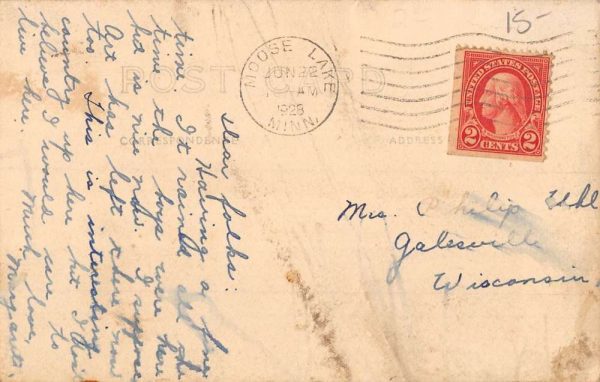 15-
POST CARD
CORRESPONDENCE
ADDRESS
MOOSE LAKE
JUN
AM
1928
MINN.
UNITED STATES POSTAGE
2 CENTS 2
Mrs. Philip Uhl
Galesville
Wisconsin.
Dear folks:
Having a fine
time. It rained all the
time the boys were here
but is nice now. I suppose
Art has left there now
too. This is interesting
country up here but I don't
believe I would care to
live here. Much love,
Margaret.